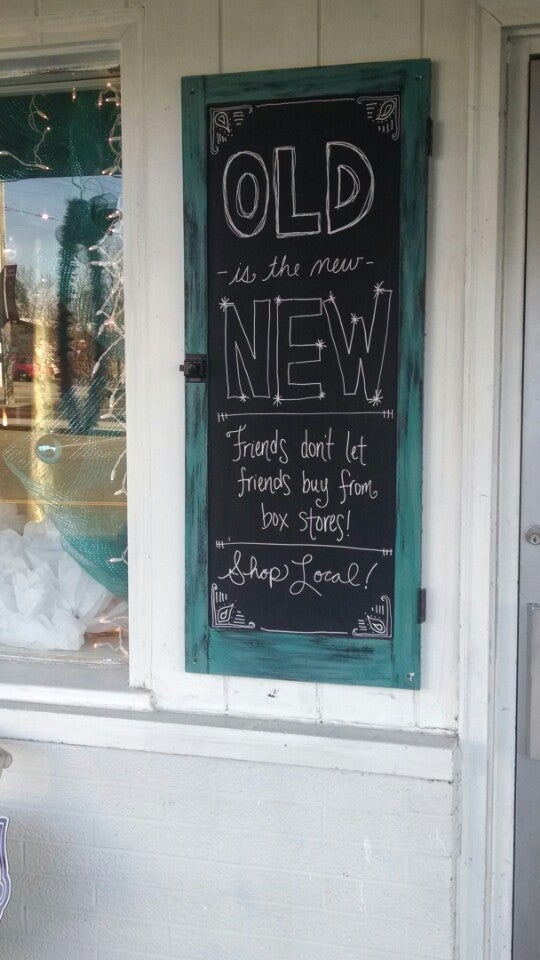 OLD
-is the new-
NEW
Friends don't let
friends buy from
box stores!
Shop Local!